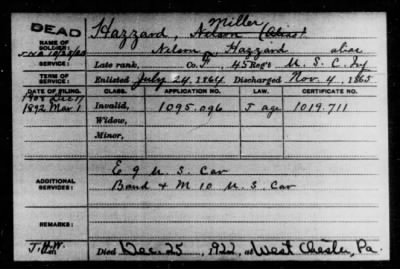 DEAD
Miller
NAME OF SOLDIER: Hazzard, Nelson (Alias)
Nelson Hazzard alias
SERVICE: Late rank, Co. F, 45 Reg't U. S. C. Inf
TERM OF SERVICE: Enlisted July 24, 1864 Discharged Nov. 4, 1865
DATE OF FILING. CLASS. APPLICATION NO. LAW. CERTIFICATE NO.
1892 Mar 1 Invalid, 1095.096 J age 1019.711
Widow,
Minor,
ADDITIONAL SERVICES: E 9 U. S. Cav
Band & M 10 U. S. Cav
REMARKS:
Died Dec. 25, 1922, at West Chester, Pa.